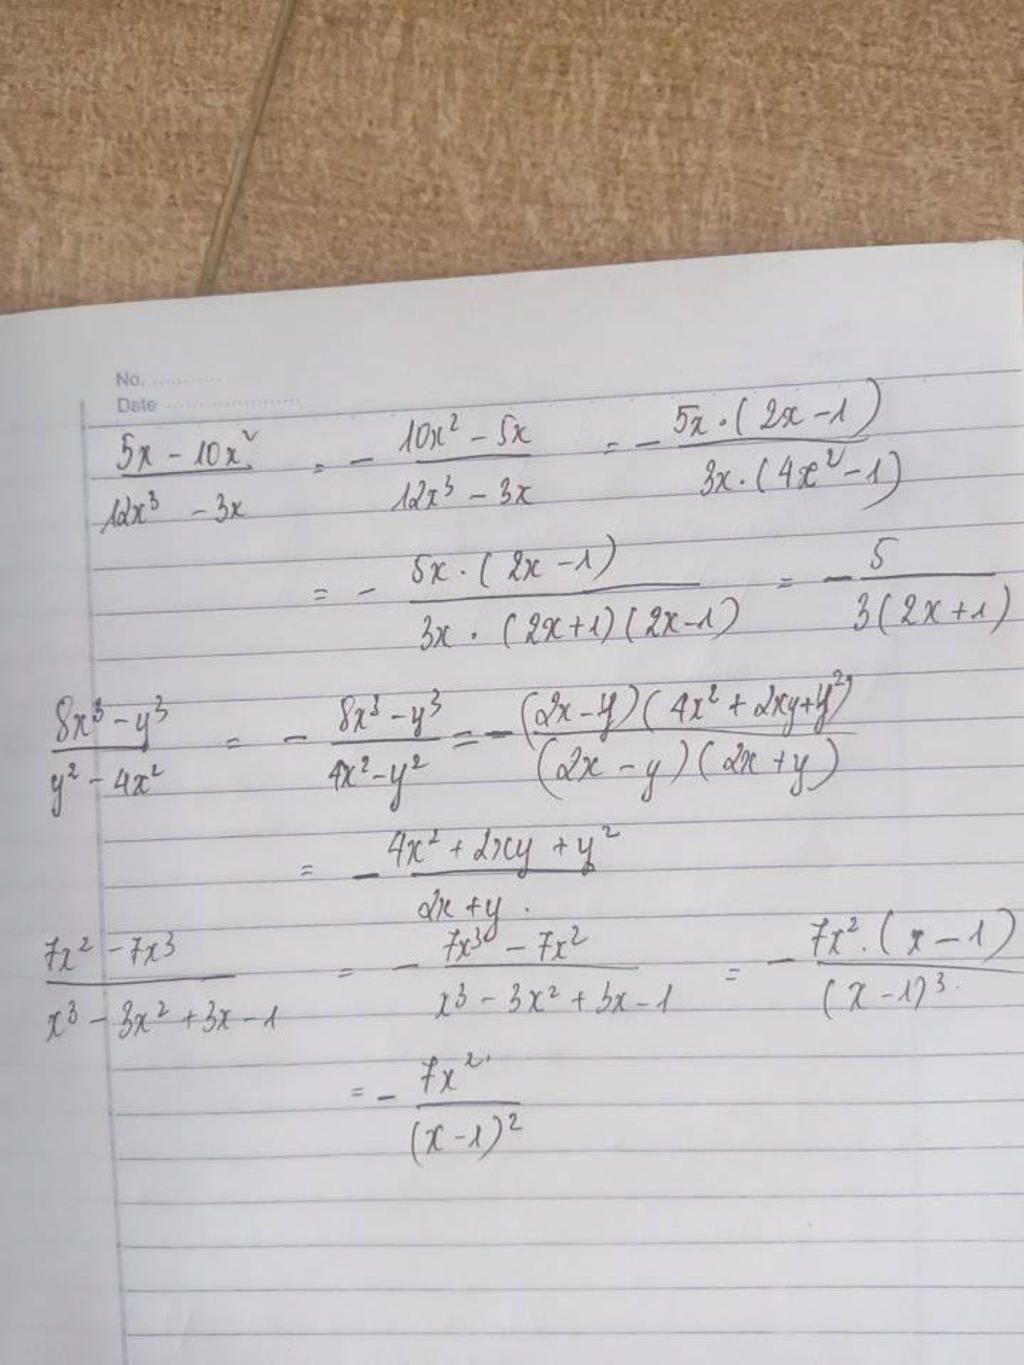 No. ............
Date ......................
(5x - 10x²)/(12x³ - 3x) = - (10x² - 5x)/(12x³ - 3x) = - (5x.(2x-1))/(3x.(4x²-1))
= - (5x.(2x-1))/(3x.(2x+1)(2x-1)) = - 5/(3(2x+1))
(8x³ - y³)/(y² - 4x²) = - (8x³ - y³)/(4x² - y²) = - ((2x-y)(4x² + 2xy + y²))/((2x - y)(2x + y))
= - (4x² + 2xy + y²)/(2x + y).
(7x² - 7x³)/(x³ - 3x² + 3x - 1) = - (7x³ - 7x²)/(x³ - 3x² + 3x - 1) = - (7x².(x - 1))/((x - 1)³.)
= - (7x²)/((x - 1)²)